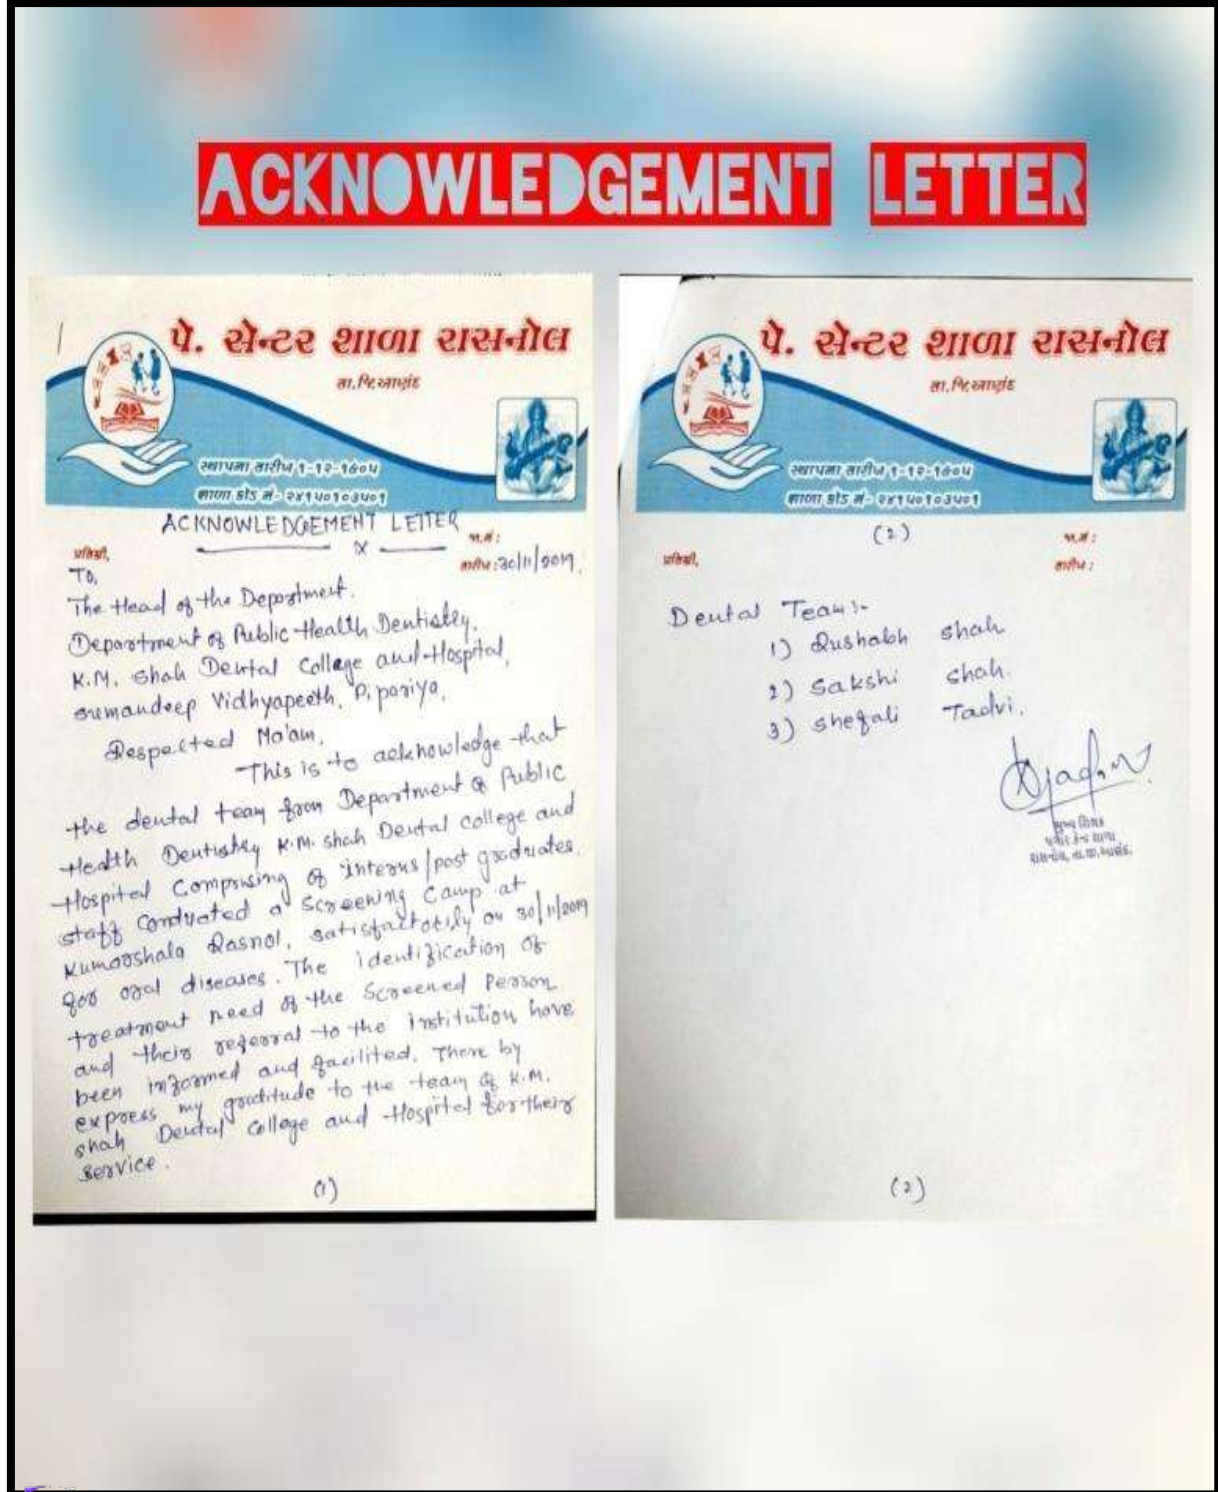 ACKNOWLEDGEMENT LETTER
પે. સેન્ટર શાળા રાસનોલ
તા.જિ.આણંદ
સ્થાપના તારીખ ૧-૧૨-૧૯૦૫
શાળા કોડ નં- ૨૪૧૫૦૧૦૩૫૦૧
ACKNOWLEDGEMENT LETTER
x
જા.નં :
પ્રતિશ્રી,
તારીખ : 30/11/2019.
To,
The Head of the Department.
Department of Public Health Dentistry.
K.M. Shah Dental College and Hospital,
Sumandeep Vidhyapeeth, Pipariya,
Respected Ma'am,
This is to acknowledge that
the dental team from Department of Public
Health Dentistry K.M. Shah Dental College and
Hospital Comprising of interns/post graduates.
staff conducted a Screening Camp at
Kumarshala Rasnol, satisfactorily on 30/11/2019
for oral diseases. The identification of
treatment need of the Screened Person
and their referral to the institution have
been informed and facilited. There by
express my gratitude to the team of K.M.
Shah Dental College and Hospital for their
service.
(1)
પે. સેન્ટર શાળા રાસનોલ
તા.જિ.આણંદ
સ્થાપના તારીખ ૧-૧૨-૧૯૦૫
શાળા કોડ નં- ૨૪૧૫૦૧૦૩૫૦૧
(2)
જા.નં :
પ્રતિશ્રી,
તારીખ :
Dental Team:-
1) Rushabh Shah
2) Sakshi Shah.
3) Shefali Tadvi.
મુખ્ય શિક્ષક
પગાર કેન્દ્ર શાળા
રાસનોલ, તા.જી.આણંદ.
(2)